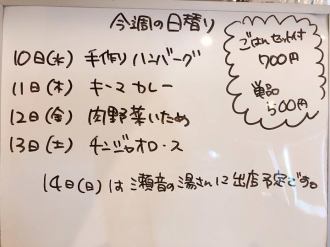 今週の日替り
10日(水) 手作りハンバーグ
11日(木) キーマカレー
12日(金) 肉野菜いため
13日(土) チンジャオロース
14日(日)は瀬音の湯さんに出店予定です。
ごはんセット付
700円
単品
500円